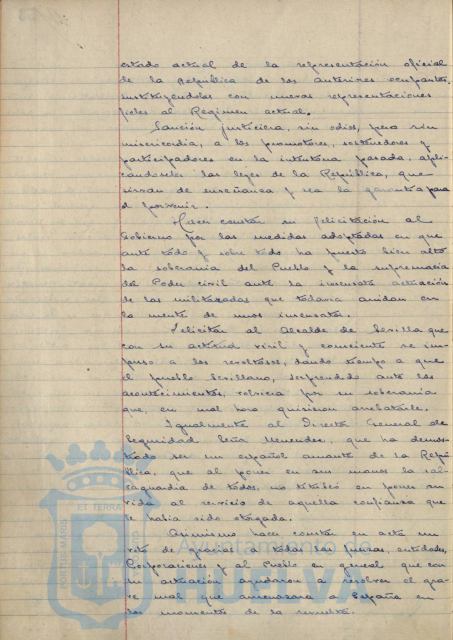 estado actual de la representación oficial
de la República de los anteriores ocupantes,
sustituyendolas con nuevas representaciones
fieles al Regimen actual.
Sanción justiciera, sin odios, pero sin
misericordia, a los promotores, sostenedores y
participadores en la intentona pasada, apli-
candoseles las leyes de la República, que
sirvan de enseñanza y sea la garantia para
el porvenir.
Hacer constar su felicitación al
Gobierno por las medidas adoptadas en que
ante todo y sobre todo ha puesto bien alto
la soberania del Pueblo y la supremacia
del Poder civil ante la insensata actuación
de las militaradas que todavia anidan en
la mente de unos insensatos.
Felicitar al Alcalde de Sevilla que
con su actitud viril y consciente se im-
puso a los revoltosos, dando tiempo a que
el pueblo Sevillano, sorprendido ante los
acontecimientos, volviera por su soberania
que, en mal hora quisieron arrebatarle.
Igualmente al Director General de
Seguridad Señor Menendez, que ha demos-
trado ser un español amante de la Repú-
blica, que al poner en sus manos la sal-
vaguardia de todos, no titubeó en poner su
vida al servicio de aquella confianza que
le habia sido otorgada.
Asimismo hacer constar en acta un
voto de gracias a todas las fuerzas, entidades,
Corporaciones y al Pueblo en general que con
su actuación ayudaron a resolver el gra-
ve mal que amenazara a España en
los momentos de la revuelta.
PORTUS MARIS ET TERRAE
Ayuntamiento de
HUELVA